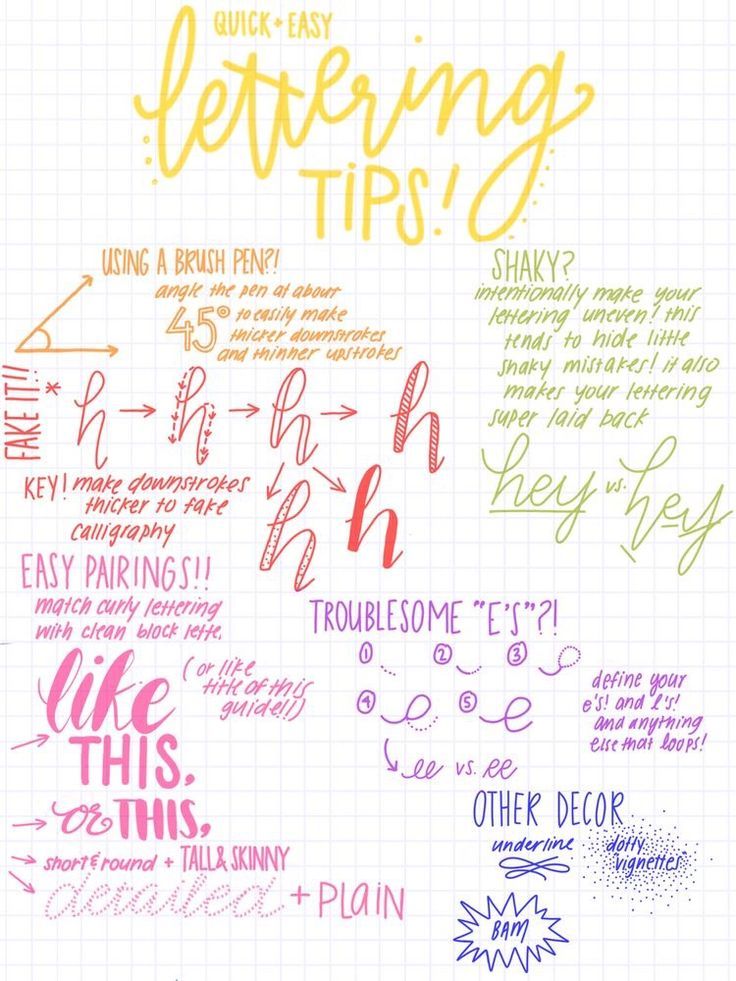 QUICK + EASY
lettering
TIPS!
USING A BRUSH PEN?!
angle the pen at about
45° to easily make
thicker downstrokes
and thinner upstrokes
FAKE IT!!
*
h → h → h → h
h h
KEY! make downstrokes
thicker to fake
calligraphy
SHAKY?
intentionally make your
lettering uneven! this
tends to hide little
shaky mistakes! it also
makes your lettering
super laid back
hey vs. hey
EASY PAIRINGS!!
match curly lettering
with clean block lette.
like
THIS,
(or like
title of this
guide!!)
or THIS,
short & round + TALL & SKINNY
detailed + PLAIN
TROUBLESOME "E'S"?!
1 2 3
4 5 e
ee vs. ee
define your
e's! and l's!
and anything
else that loops!
OTHER DECOR
underline
dotty
vignettes
BAM